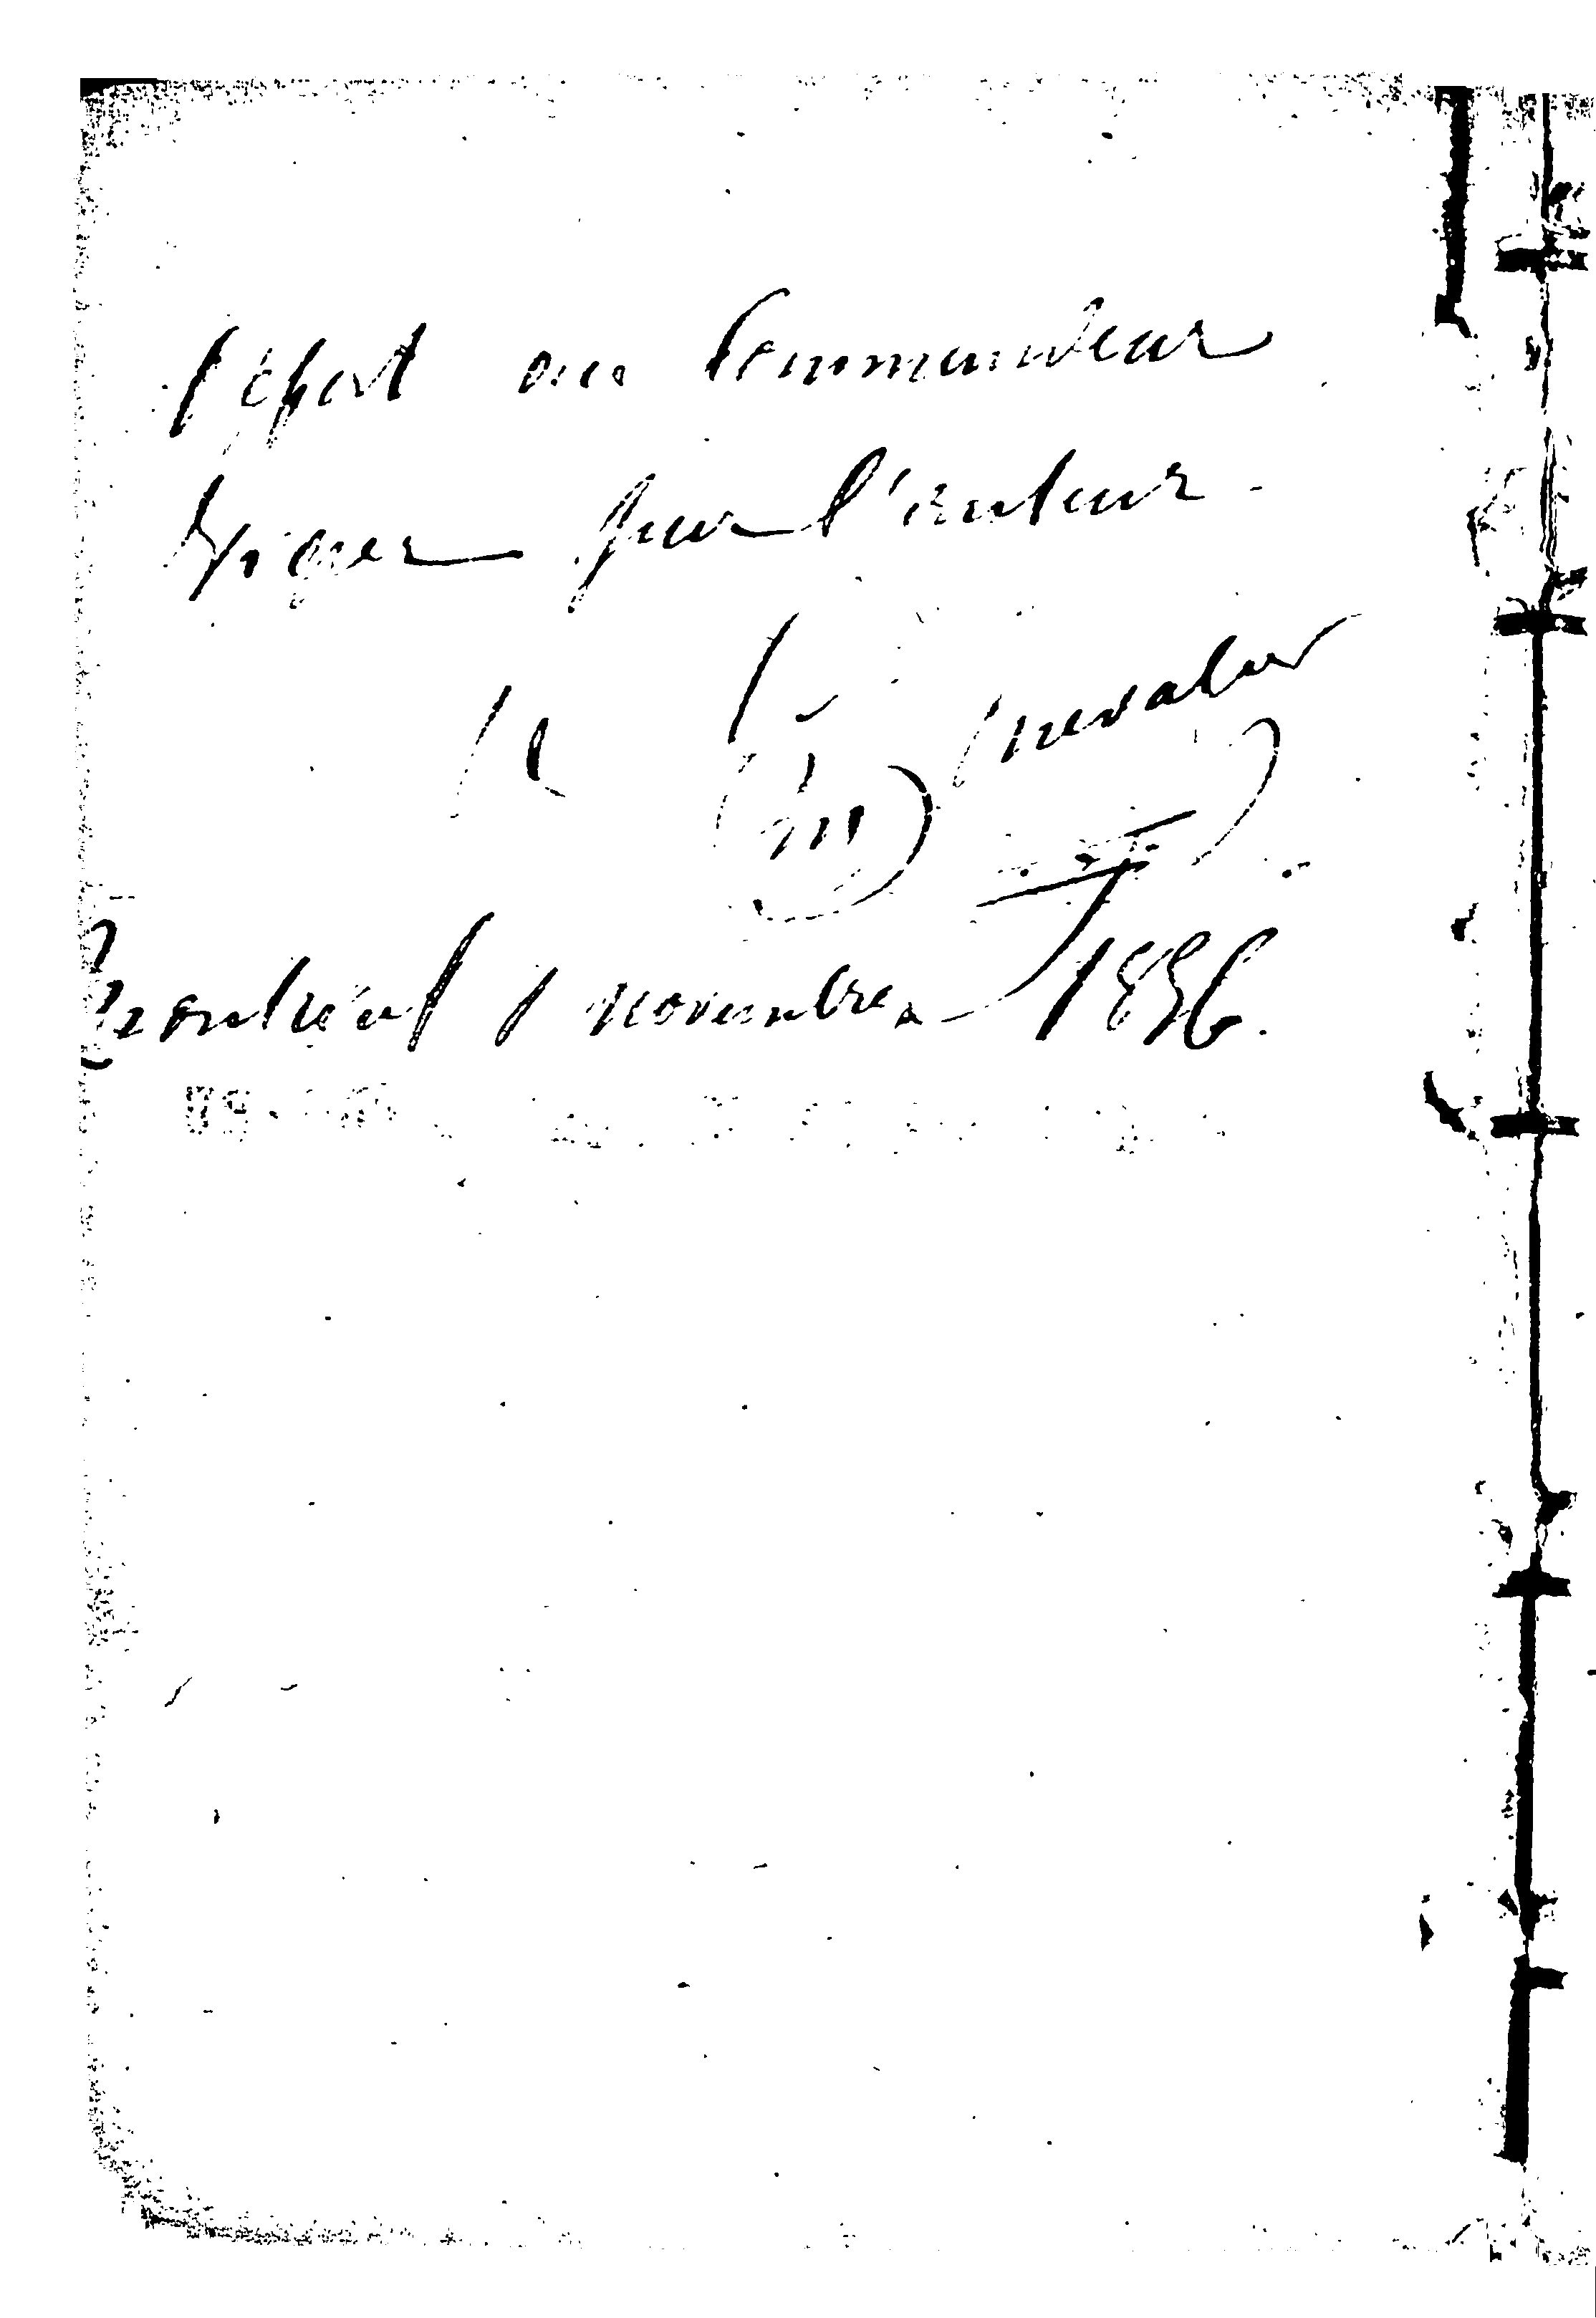 offert au Commandeur
Viger par l'auteur.
Chevalier
Montréal 1 novembre 1856.